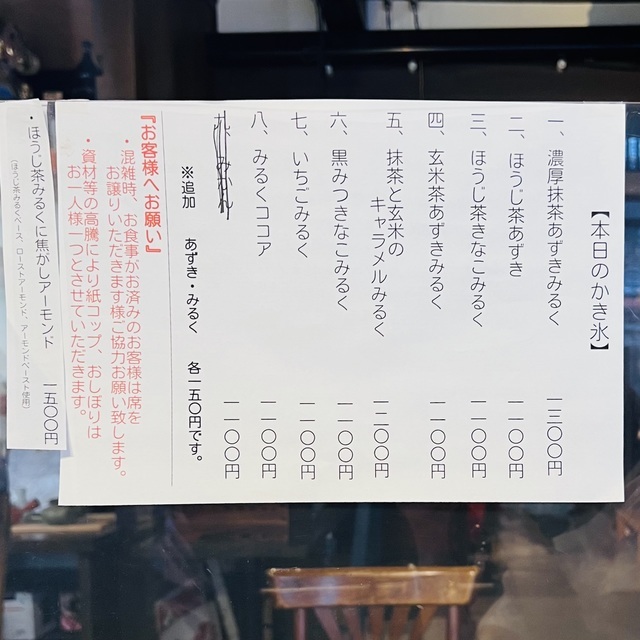 【本日のかき氷】
一、濃厚抹茶あずきみるく 一三〇〇円
二、ほうじ茶あずき 一一〇〇円
三、ほうじ茶きなこみるく 一一〇〇円
四、玄米茶あずきみるく 一一〇〇円
五、抹茶と玄米の
キャラメルみるく 一二〇〇円
六、黒みつきなこみるく 一一〇〇円
七、いちごみるく 一一〇〇円
八、みるくココア 一一〇〇円
九、みかん 一一〇〇円
※追加 あずき・みるく 各一五〇円です。
『お客様へお願い』
・混雑時、お食事がお済みのお客様は席を
お譲りいただきます様ご協力お願い致します。
・資材等の高騰により紙コップ、おしぼりは
お一人様一つとさせていただきます。
・ほうじ茶みるくに焦がしアーモンド 一五〇〇円
(ほうじ茶みるくベース、ローストアーモンド、アーモンドペースト使用)